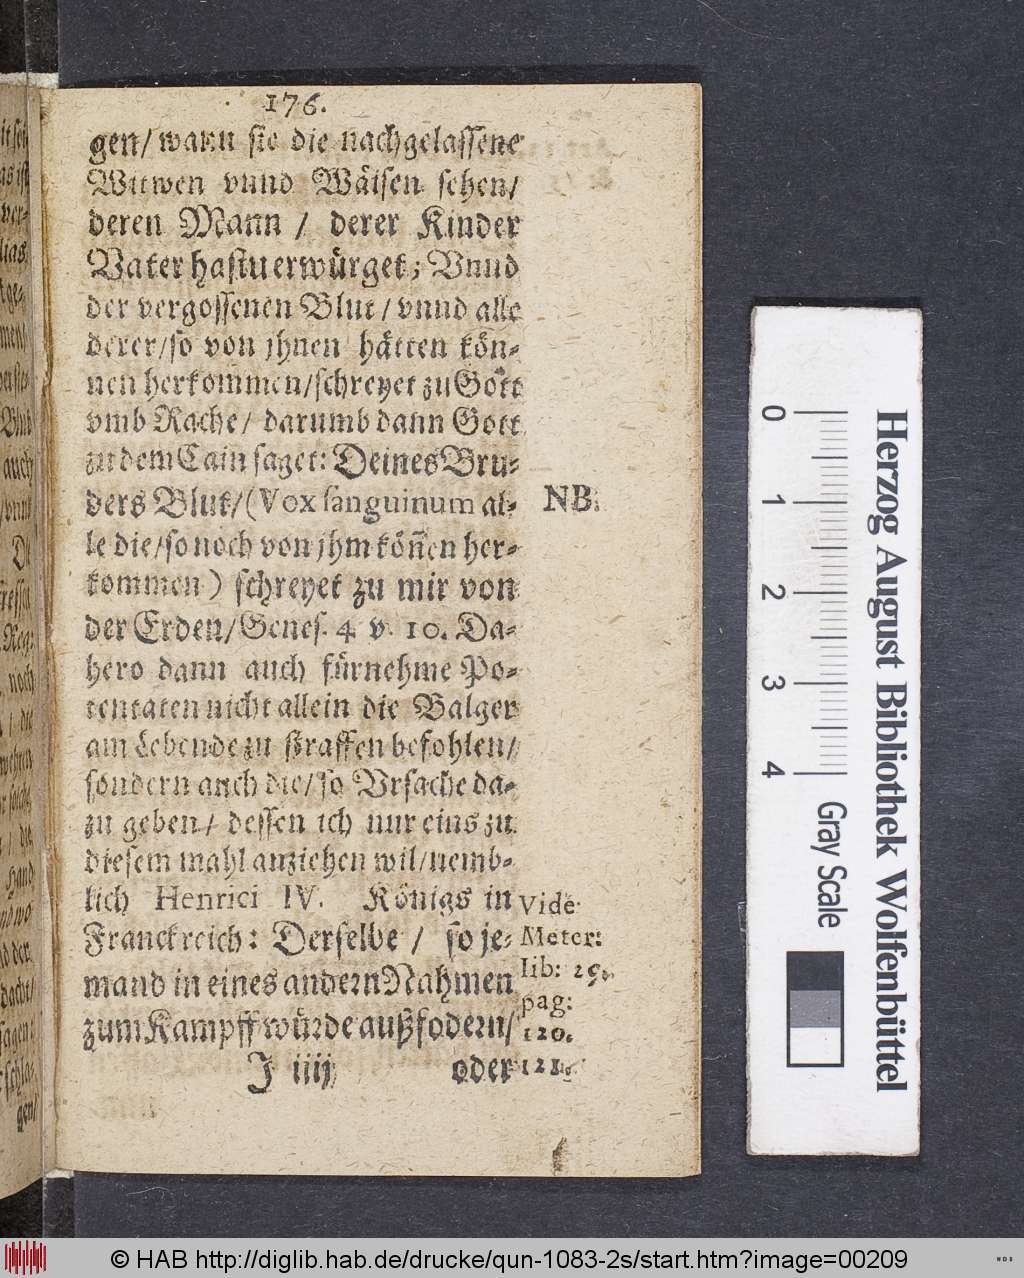 176.
gen/ wann sie die nachgelassene
Witwen vnnd Wäisen sehen/
deren Mann / derer Kinder
Vater hastu erwürget; Vnnd
der vergossenen Blut / vnnd alle
derer/so von jhnen hätten kön-
nen herkommen/schreyet zu Gott
vmb Rache/ darumb dann Gott
zu dem Cain saget: Deines Bru-
ders Blut/(Vox sanguinum al-
NB.
le die/so noch von jhm köñen her-
kommen) schreyet zu mir von
der Erden/Genes. 4 v. 10. Da-
hero dann auch fürnehme Po-
tentaten nicht allein die Balger
am Lebende zu straffen befohlen/
sondern auch die/so Vrsache da-
zu geben/ dessen ich nur eins zu
diesem mahl anziehen wil/nemb-
lich Henrici IV. Königs in
Franckreich: Derselbe / so je-
mand in eines andern Nahmen
zum Kampff würde außfodern/
Vide
Meter:
lib: 29.
pag:
120.
121.
J iiij
oder
0
1
2
3
4
Gray Scale
Herzog August Bibliothek Wolfenbüttel
© HAB http://diglib.hab.de/drucke/qun-1083-2s/start.htm?image=00209